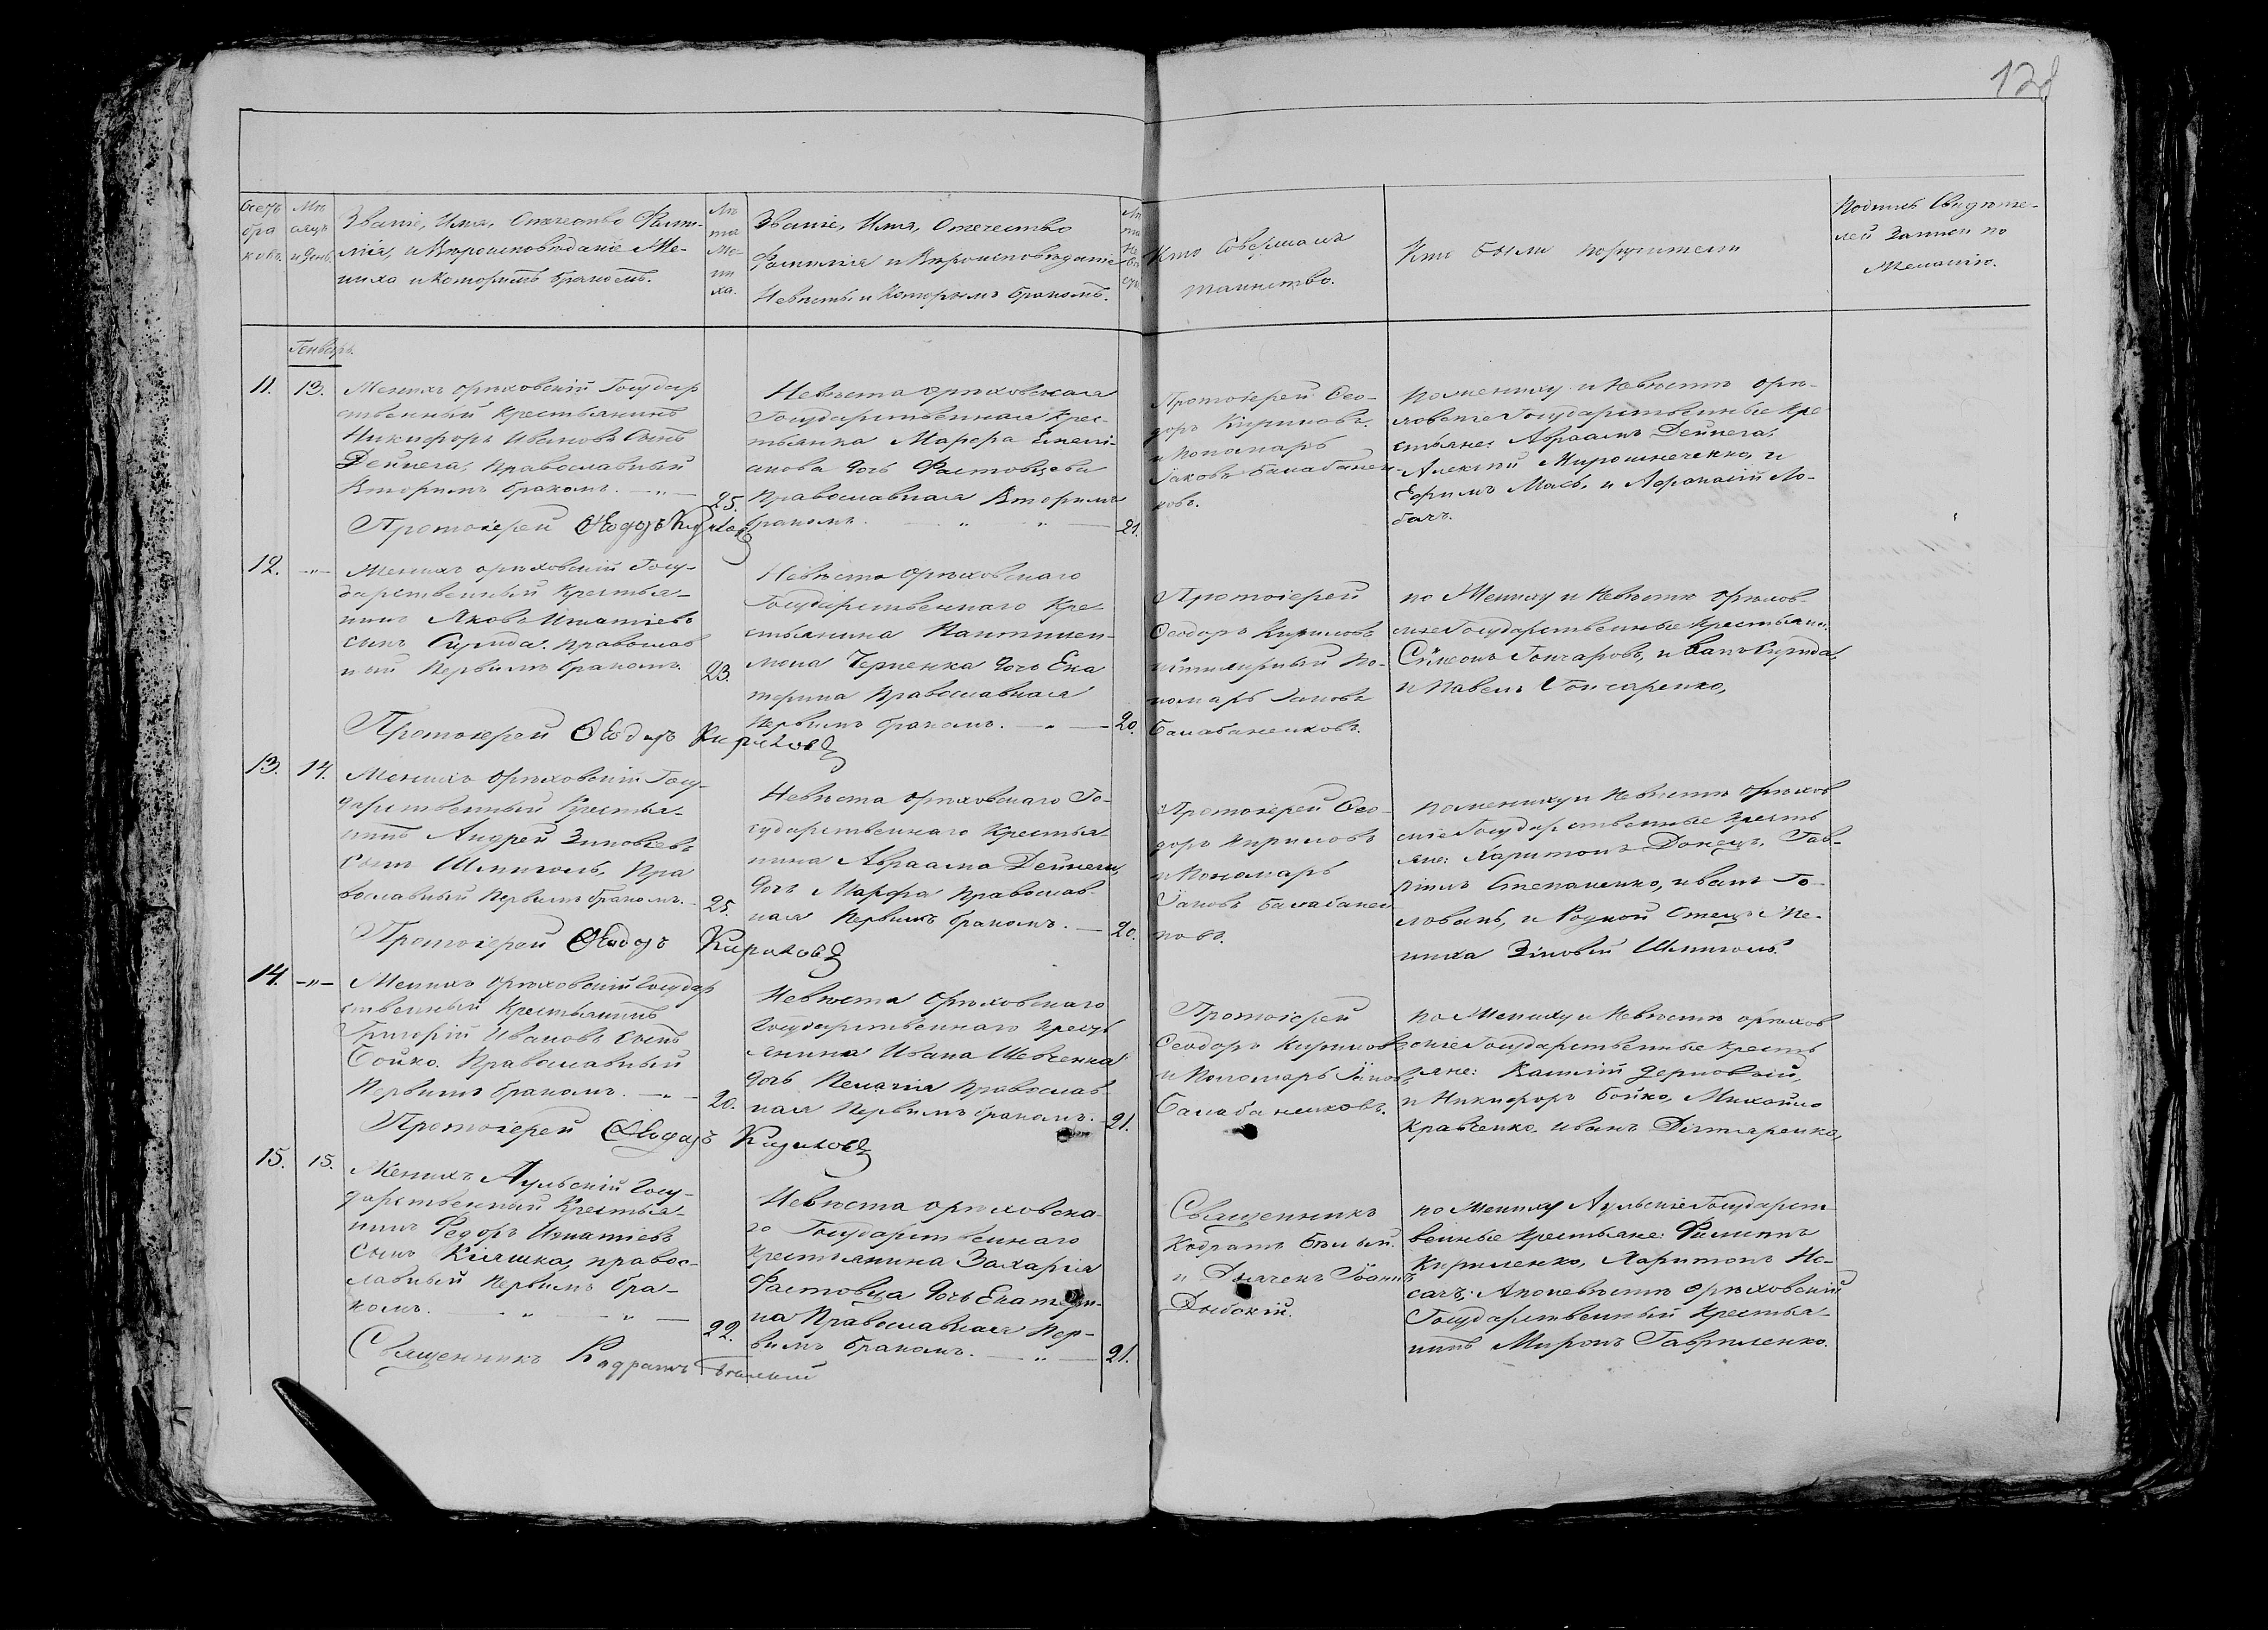 128
Счетъ
бра
ковъ.
Мѣ
сяцъ
и день.
Званіе, Имя, Отчество Фами-
лія, и Вѣроисповѣданіе Же-
ниха и которымъ бракомъ.
Лѣ
та
Же
ни
ха.
Званіе, Имя, Отечество
Фамилія и Вѣроисповѣданіе
Невѣсты и Которымъ бракомъ.
Лѣ
та
Не
вѣ
сты
Кто Совершалъ
таинство.
Кто были поручители
Подпись Свидѣте-
лей Записи по
Желанію.
Генварь.
11.
13.
Женихъ Орѣховскій Государ
ственный Крестьянинъ
Никифоръ Ивановъ Сынъ
Дейнега, Православный
Вторимъ бракомъ.
25.
Протоіерей Ѳеодоръ Кириловъ
Невѣста Орѣховская
Государственная Крес-
тьянка Марфа
дочь Фастовцева
Православная Вторимъ
бракомъ.
21.
Протоіерей Ѳео-
доръ Кириловъ
и Пономарь
Іаковъ Балабанен-
ковъ.
По жениху и Невѣстѣ Орѣ-
ховскіе Государственные Кре
стьяне: Авраамъ Дейнега,
Алексѣй Мирошнеченко, и
Ефимъ Мась, и Афанасій Ло-
бачъ.
12.
Женихъ орѣховскій Госу-
дарственный Крестья-
нинъ Яковъ Игнатіевъ
сынъ Сирида. православ
ный Первимъ бракомъ.
23.
Протоіерей Ѳеодоръ Кириловъ
Невѣста Орѣховскаго
Государственнаго Кре-
стьянина Пантилей-
мона Черненка дочь Ека
терина Православная
Первимъ бракомъ.
20.
Протоіерей
Ѳеодоръ Кириловъ
По-
номарь Іаковъ
Балабаненковъ.
по Жениху и Невѣстѣ Орѣхов-
скіе Государственные крестьяни:
Сѵмеонъ Гончаровъ, и Иванъ Сирида,
и Павелъ Гончаренко,
13.
14.
Женихъ Орѣховскій Госу-
дарственный Крестья-
нинъ Андрей Зиновіевъ
Сынъ Шпиголь, Пра
вославный Первимъ бракомъ.
25.
Протоіерей Ѳеодоръ Кириловъ
Невѣста Орѣховскаго Го-
сударственнаго Крестья
нина Авраама Дейнеги,
дочь Марфа Православ-
ная Первимъ бракомъ.
20.
Протоіерей Ѳео-
доръ Кириловъ
и Пономарь
Іаковъ Балабанен
ковъ.
По жениху и Невѣстѣ Орѣхов
скіе Государственные Кресть
яне: Харитонъ Донецъ, Гав-
ріилъ Степаненко, иванъ Го-
ловань, и Родной Отецъ Же-
ниха Зіновій Шпиголь.
14.
Женихъ Орѣховскій Государ
ственный Крестьянинъ
Григорій Ивановъ Сынъ
Бойко. Православный
Первимъ бракомъ.
20.
Протоіерей Ѳеодоръ Кириловъ
Невѣста Орѣховскаго
Государственнаго Кресть
янина Ивана Шевченка
дочь Пелагія Православ-
ная Первимъ бракомъ.
21.
Протоіерей
Ѳеодоръ Кириловъ
и Пономарь Іаковъ
Балабаненковъ.
по Жениху и Невѣстѣ орѣхов
скіе Государственные Кресть
яне: Василій Дерновый,
и Никифоръ Бойко, Михайло
Кравченко иванъ Дігтяренко,
15.
15.
Женихъ Аульскій Госу-
дарственный Крестья-
нинъ Ѳедоръ Игнатіевъ
Сынъ Кіяшка, правос-
лавный Первимъ бра-
комъ.
22.
Священникъ Кодратъ Бѣлый
Невѣста орѣховска-
го Государственнаго
Крестьянина Захарія
Фастовца дочь Екатери-
на Православная Пер-
вимъ бракомъ.
21.
Священникъ
Кодратъ Бѣлый.
и Дьячекъ Іоаннъ
по Жениху Аульскіе Государст-
венные Крестьяне: Филиппъ
Кириленко, Харитонъ Но-
сачъ, А по невѣстѣ орѣховскій
Государственный Крестья-
нинъ Миронъ Гавриленко.